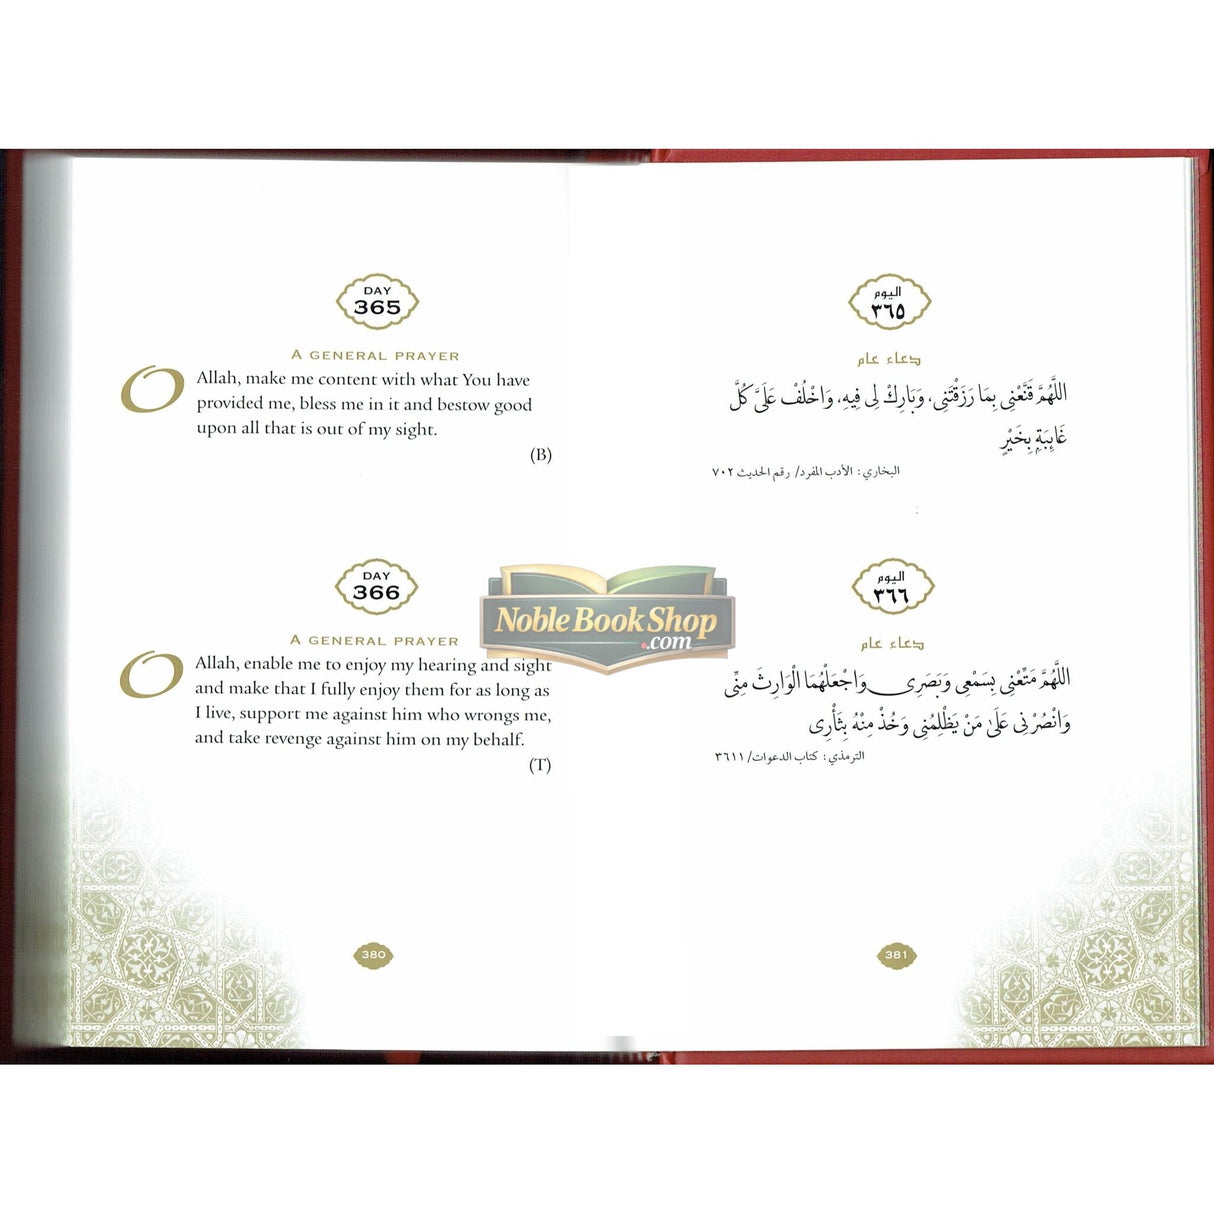 DAY
365
A GENERAL PRAYER
O Allah, make me content with what You have
provided me, bless me in it and bestow good
upon all that is out of my sight.
(B)
DAY
366
A GENERAL PRAYER
O Allah, enable me to enjoy my hearing and sight
and make that I fully enjoy them for as long as
I live, support me against him who wrongs me,
and take revenge against him on my behalf.
(T)
380
Noble Book Shop
.com
اليوم
٣٦٥
دعاء عام
اللَّهُمَّ قَنِّعْنِى بِمَا رَزَقْتَنِى، وَبَارِكْ لِى فِيهِ، وَاخْلُفْ عَلَىَّ كُلَّ
غَائِبَةٍ بِخَيْرٍ
البخاري: الأدب المفرد/ رقم الحديث ٧٠٢
اليوم
٣٦٦
دعاء عام
اللَّهُمَّ مَتِّعْنِى بِسَمْعِى وَبَصَرِى وَاجْعَلْهُمَا الْوَارِثَ مِنِّى
وَانْصُرْنِى عَلَىٰ مَنْ يَظْلِمُنِى وَخُذْ مِنْهُ بِثَأْرِى
الترمذي: كتاب الدعوات/ ٣٦١١
381